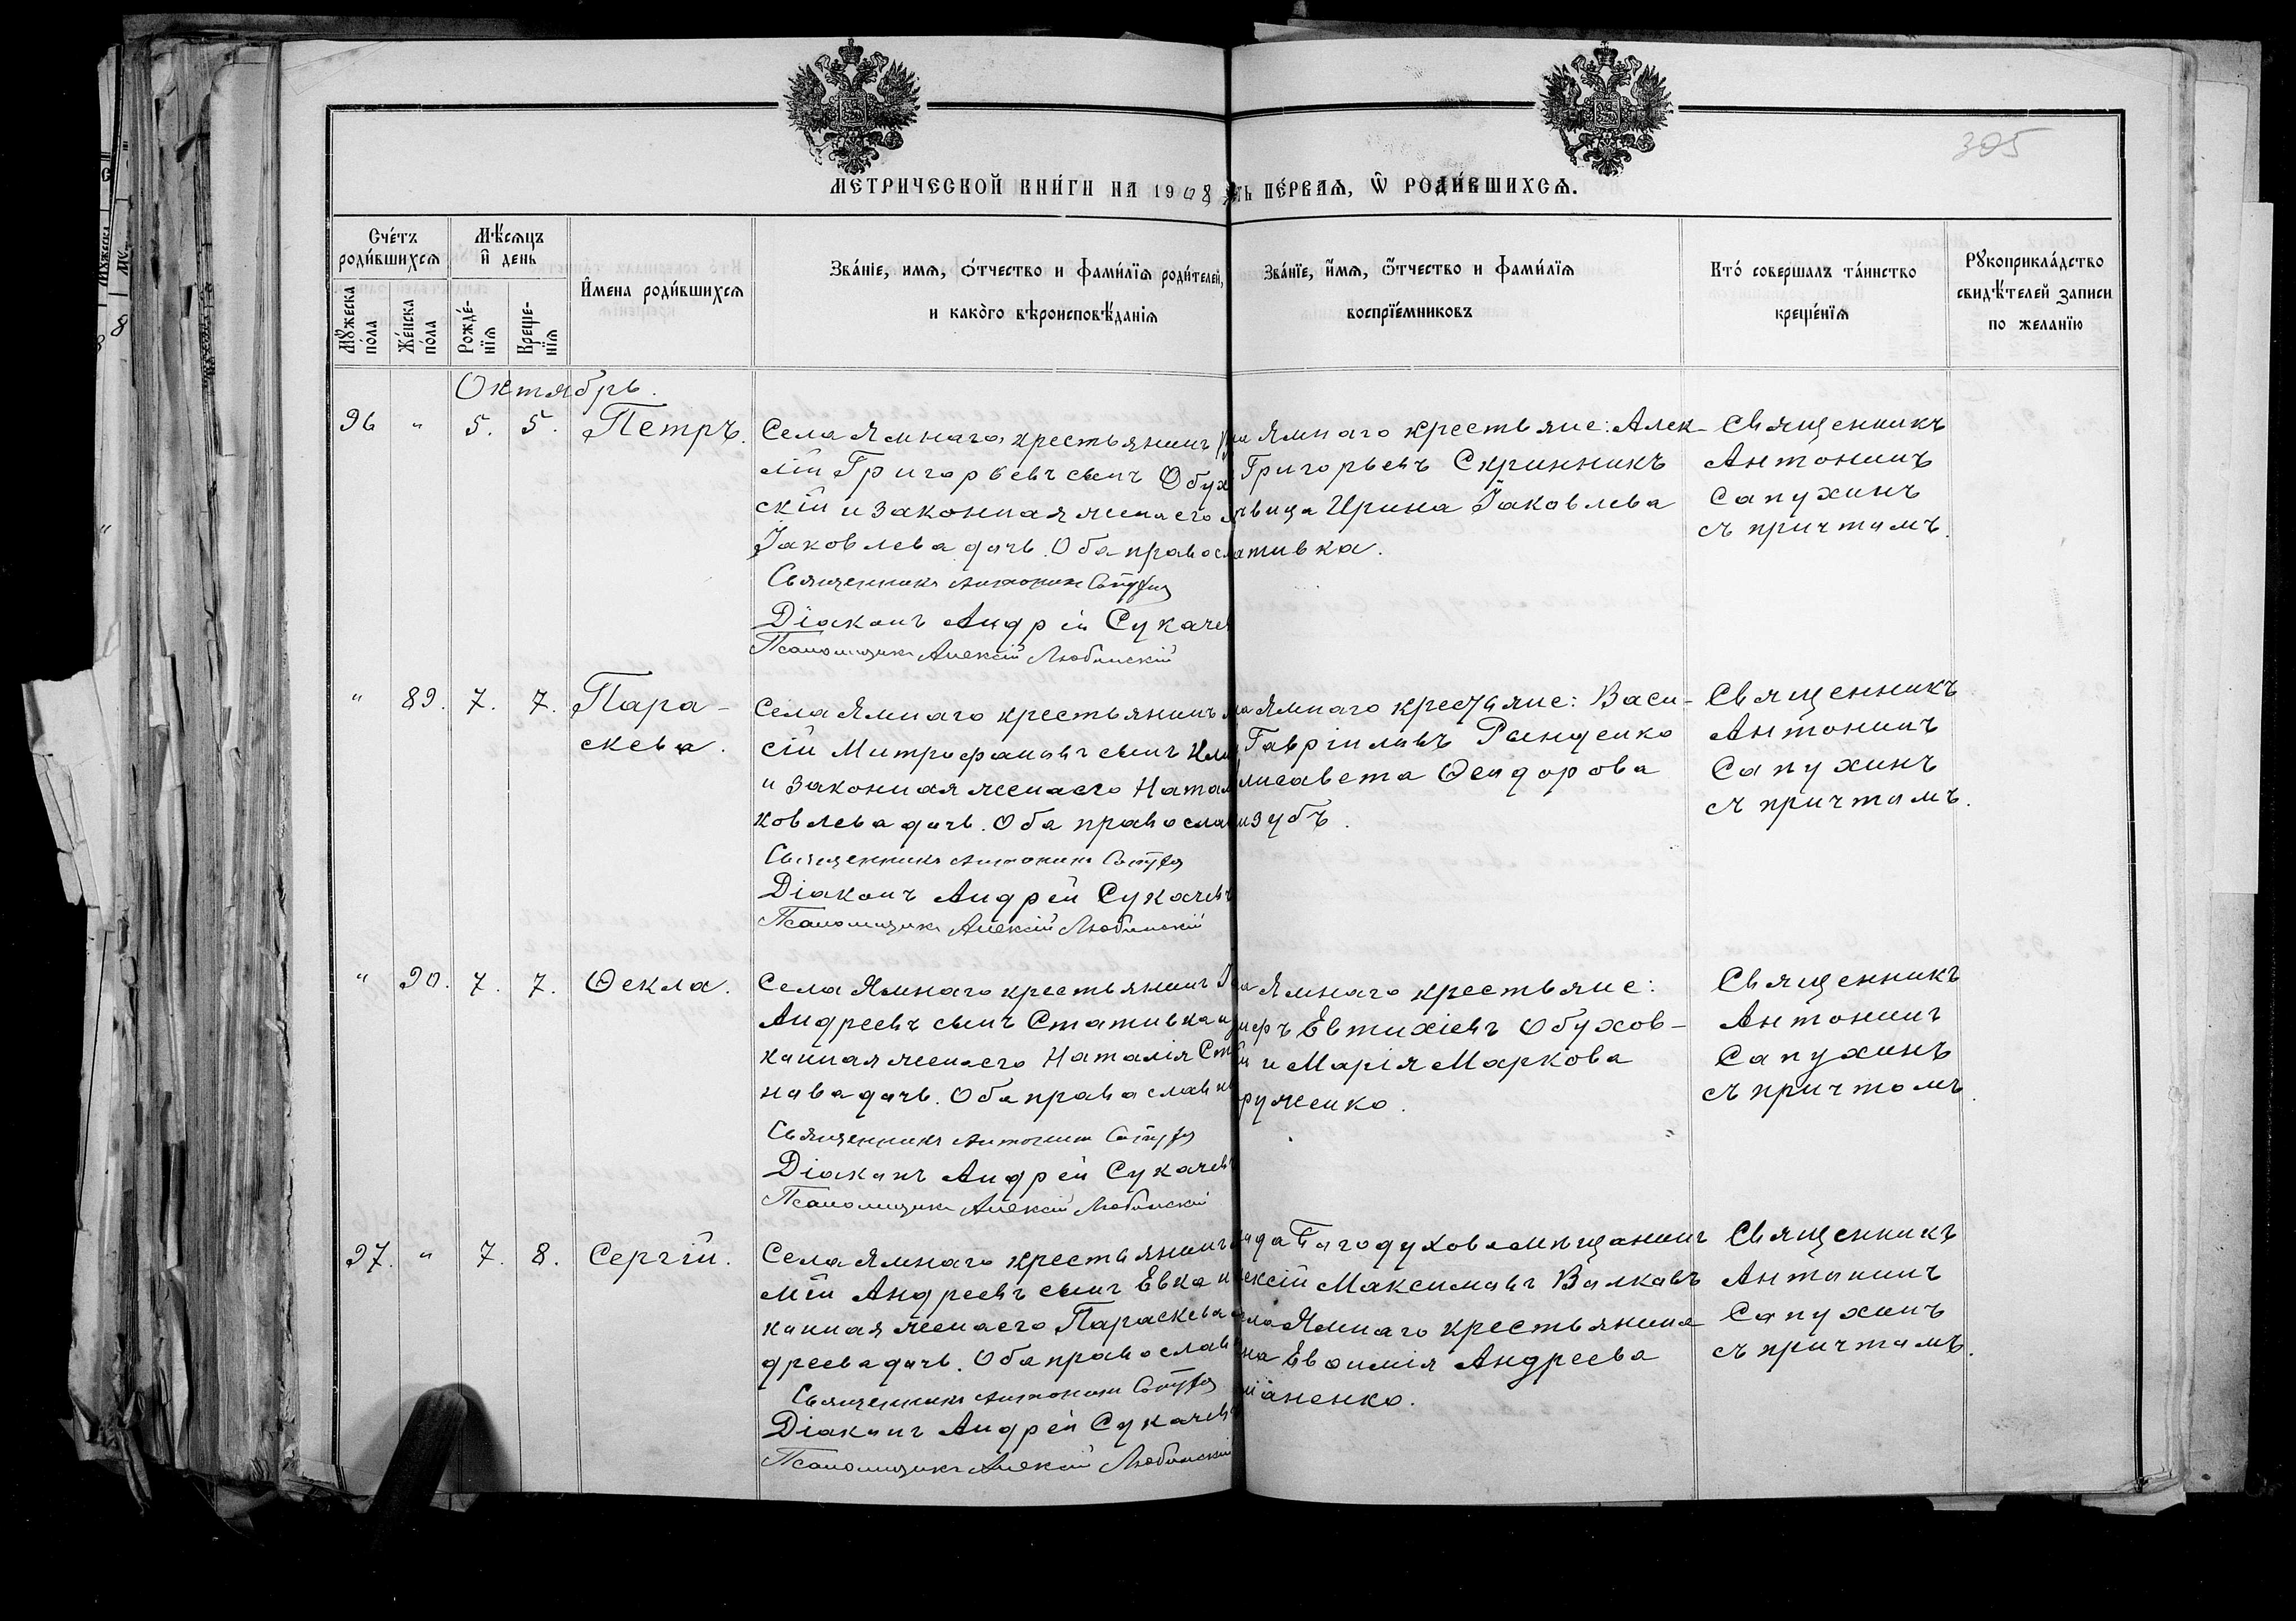 305
МЕТРИЧЕСКОЙ КНИ́ГИ НА 1908 ПЕ́РВАѦ, Ѡ РОДИ́ВШИХСѦ.
Сче́тъ роди́вшихсѧ
Мѣ́сѧцъ и҆ день
И҆мена роди́вшихсѧ
Зва́нїе, имѧ, ѻ́тчество и фами́лїѧ роди́телей,
и како̀го вѣроисповѣ́данїѧ
Зва́нїе, и҆́мѧ, ѻ҆́тчество и фами́лїѧ
воспрїе́мниковъ
Кто́ совершалъ та́инство
креще́нїѧ
Рꙋкоприкла́дство
свидѣ́телей записи
по желанїю
Мꙋ́жеска по́ла
Же́нска по́ла
Рожде́-нїѧ
Креще-нїѧ
Октябрь.
96 " 5. 5. Петръ.
Села Ямнаго крестьянинъ
лій Григорьевъ сынъ Обух
скій и законная жена его
Іаковлева дочь. Оба правосл
Священникъ Антонинъ Сапухин
Діаконъ Андрей Сукачев
Псаломщикъ Алексій Любинскій
Ямнаго крестьяне: Алек-
Григорьевъ Скринникъ
вица Ирина Іаковлева
тивка.
Священникъ
Антонинъ
Сапухинъ
съ причтомъ.
" 89. 7. 7. Пара-
скева.
Села Ямнаго крестьянинъ
сій Митрофановъ сынъ
и законная жена его Натал
ковлева дочь. Оба правосла
Священникъ Антонинъ Сапухин
Діаконъ Андрей Сукачевъ
Псаломщикъ Алексій Любинскій
Ямнаго крестьяне: Васи-
Гавріиловъ Рынденко
лисавета Ѳеодорова
изубъ.
Священникъ
Антонинъ
Сапухинъ
съ причтомъ.
" 90. 7. 7. Ѳекла.
Села Ямнаго крестьянинъ
Андреевъ сынъ Стативка и
конная жена его Наталія
нова дочь. Оба православн
Священникъ Антонинъ Сапухин
Діаконъ Андрей Сукачевъ
Псаломщикъ Алексій Любинскій
Ямнаго крестьяне:
Евтихіевъ Обухов-
и Марія Маркова
руженко.
Священникъ
Антонинъ
Сапухинъ
съ причтомъ.
97. " 7. 8. Сергій.
Села Ямнаго крестьянинъ
мій Андреевъ сынъ Евко и
конная жена его Параскева
дреева дочь. Оба православ
Священникъ Антонинъ Сапухин
Діаконъ Андрей Сукачевъ
Псаломщикъ Алексій Любинскій
да Богодухова мѣщанинъ
ексій Максимовъ Волковъ
Ямнаго крестьянина
на Евѳимія Андреева
аненко.
Священникъ
Антонинъ
Сапухинъ
съ причтомъ.